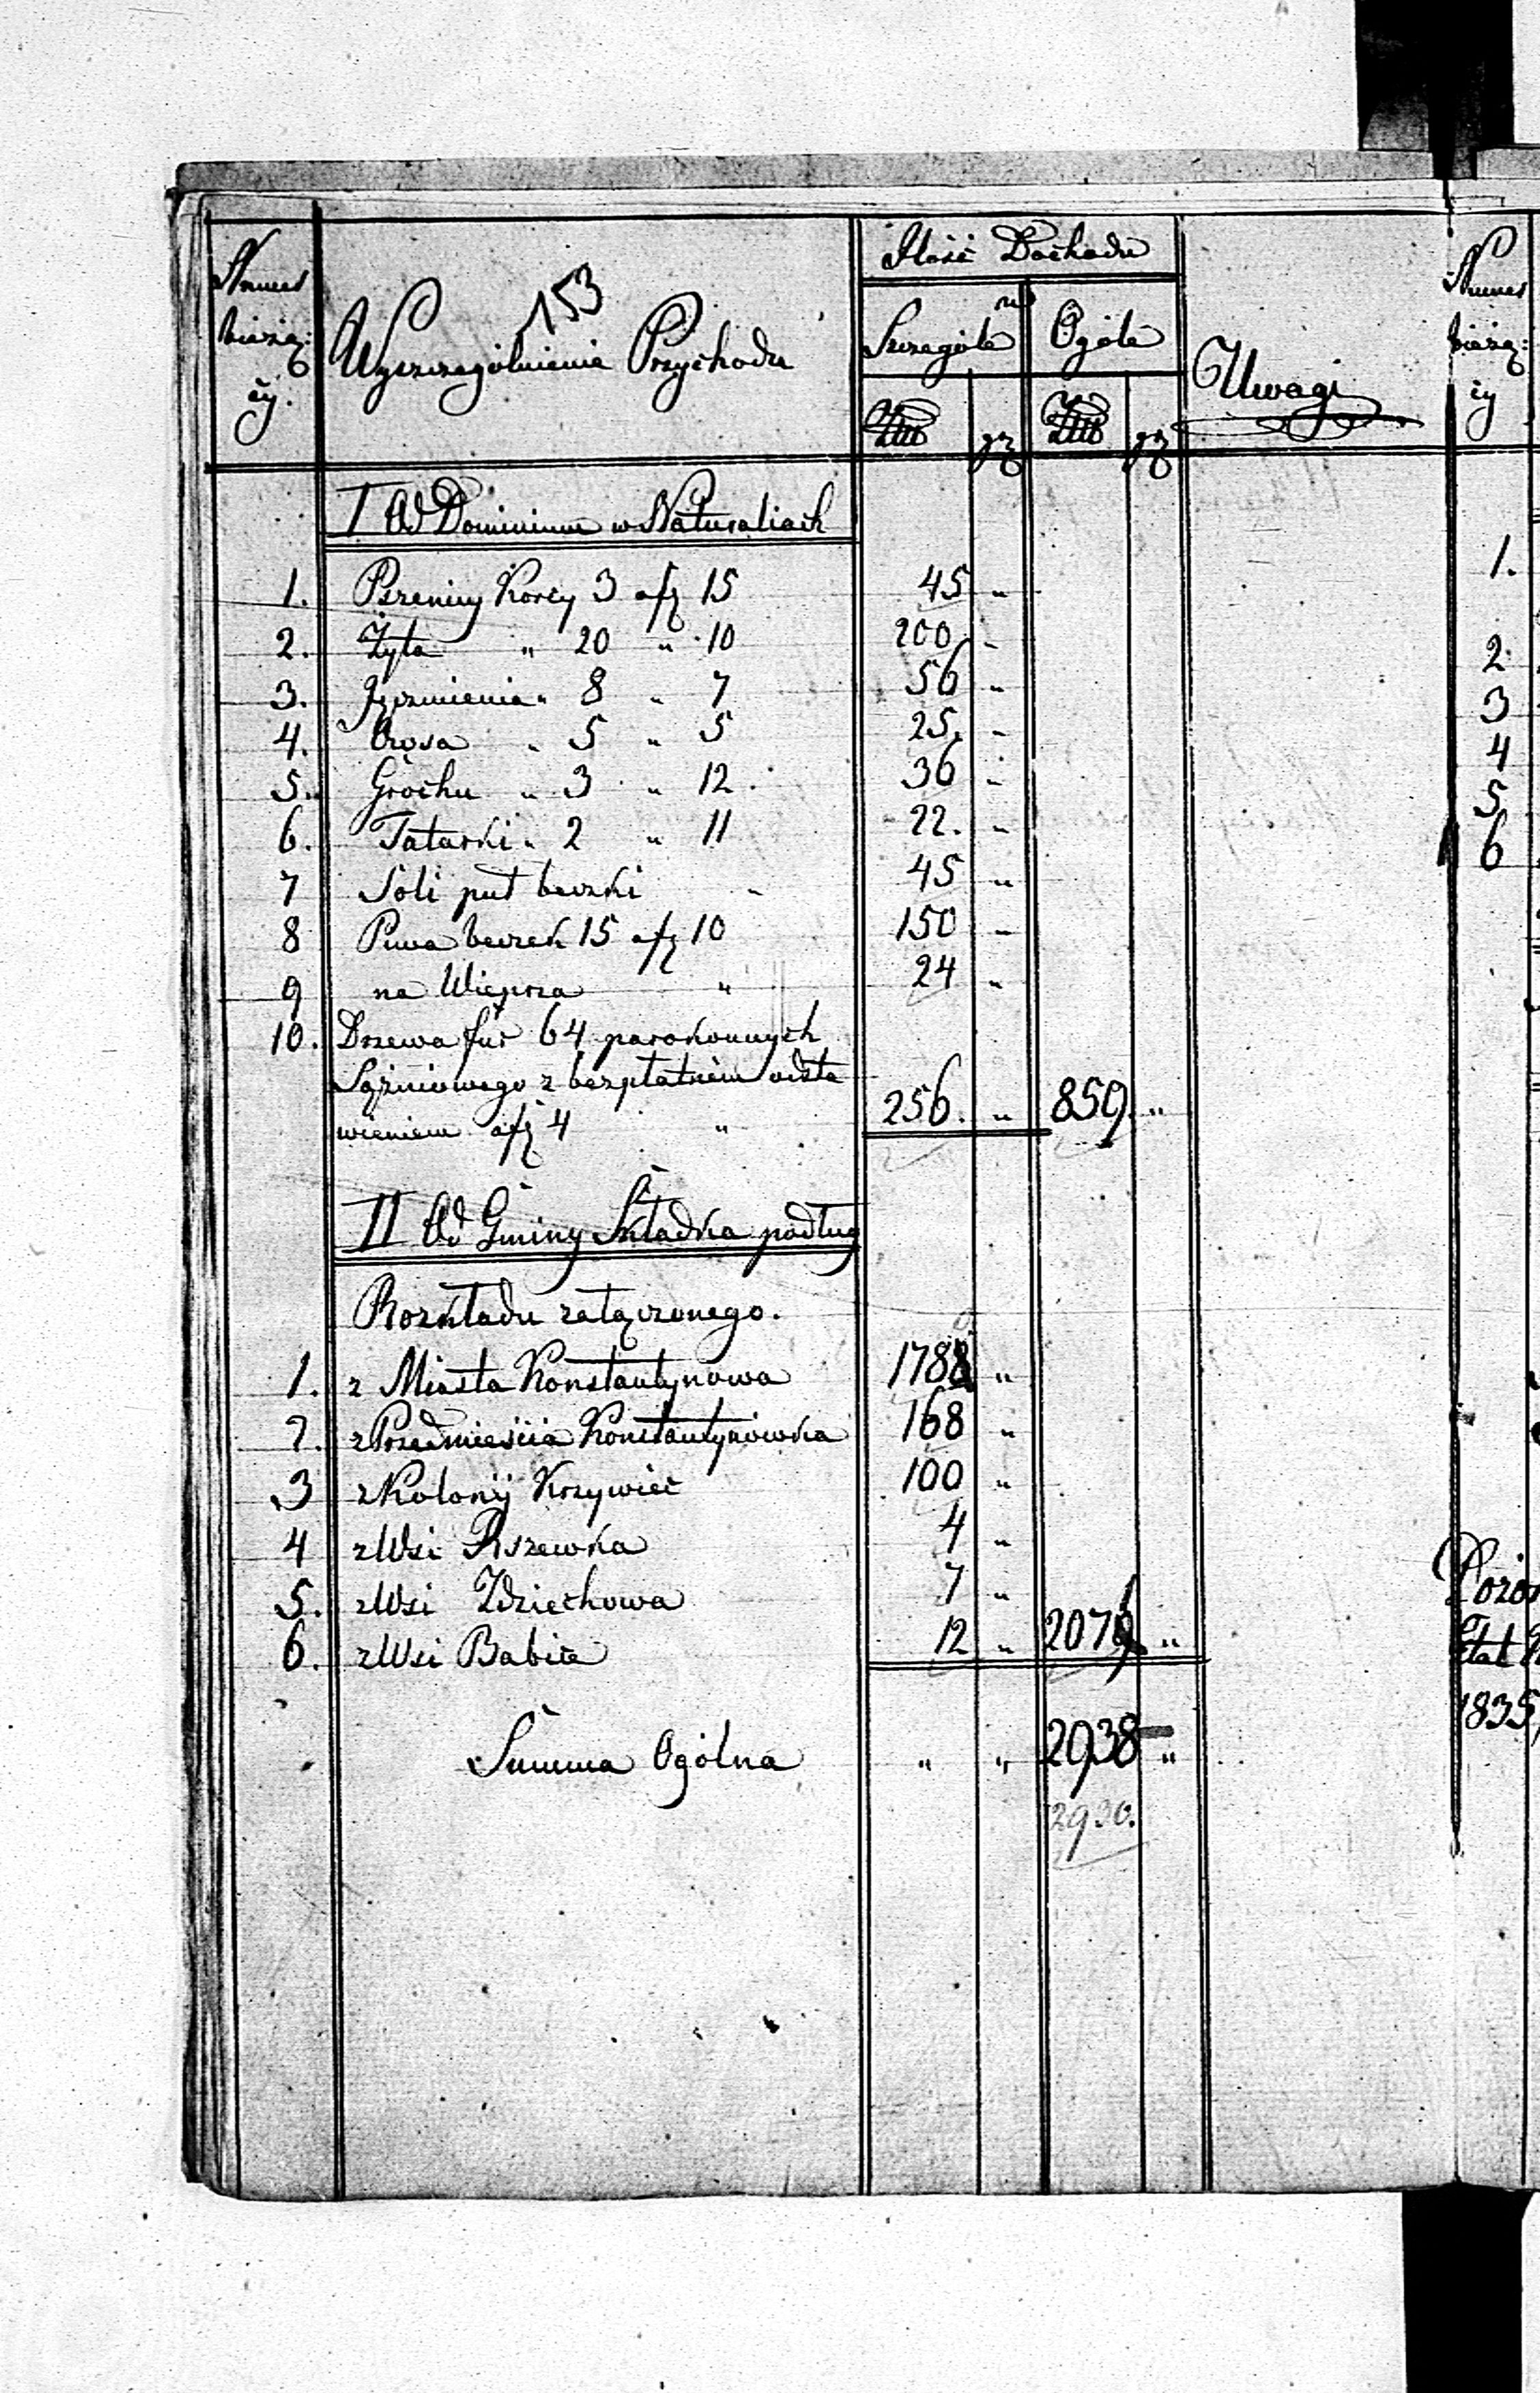 Numer bieżą: cy.
153
Wyszczególnienie Przychodu
Ilość Dochodu
w
Szczególe Ogóle
gr gr
Uwagi
I Od Dominium w Naturaliach
1. Pszenicy Korcy 3 a f 15 45 "
2. Żyta " 20 " 10 200 "
3. Jęczmienia " 8 " 7 56 "
4. Owsa " 5 " 5 25. "
5. Grochu " 3 " 12. 36 "
6. Tatarki " 2 " 11 22. "
7 Soli puł beczki " 45 "
8 Piwa beczek 15 a f 10 150 "
9 na Wieprza " 24 "
10. Drzewa fur 64 parokonnych
Sążniowego z bezpłatnem odsta
wieniem a f 4 " 256. " 859. "
II Od Gminy Składka podług
Rozkładu załączonego.
1. z Miasta Konstantynowa 1788 "
2. z Przedmieścia Konstantynówka 168 "
3 z Kolonij Krzywiec 100 "
4 z Wsi Rszewka 4 "
5. z Wsi Zdziechowa 7 "
6. z Wsi Babice 12 " 2079 "
Summa Ogólna " " 2938 "
2930.
Numer
bieżą:
cy
1.
2.
3
4
5
6
1835,